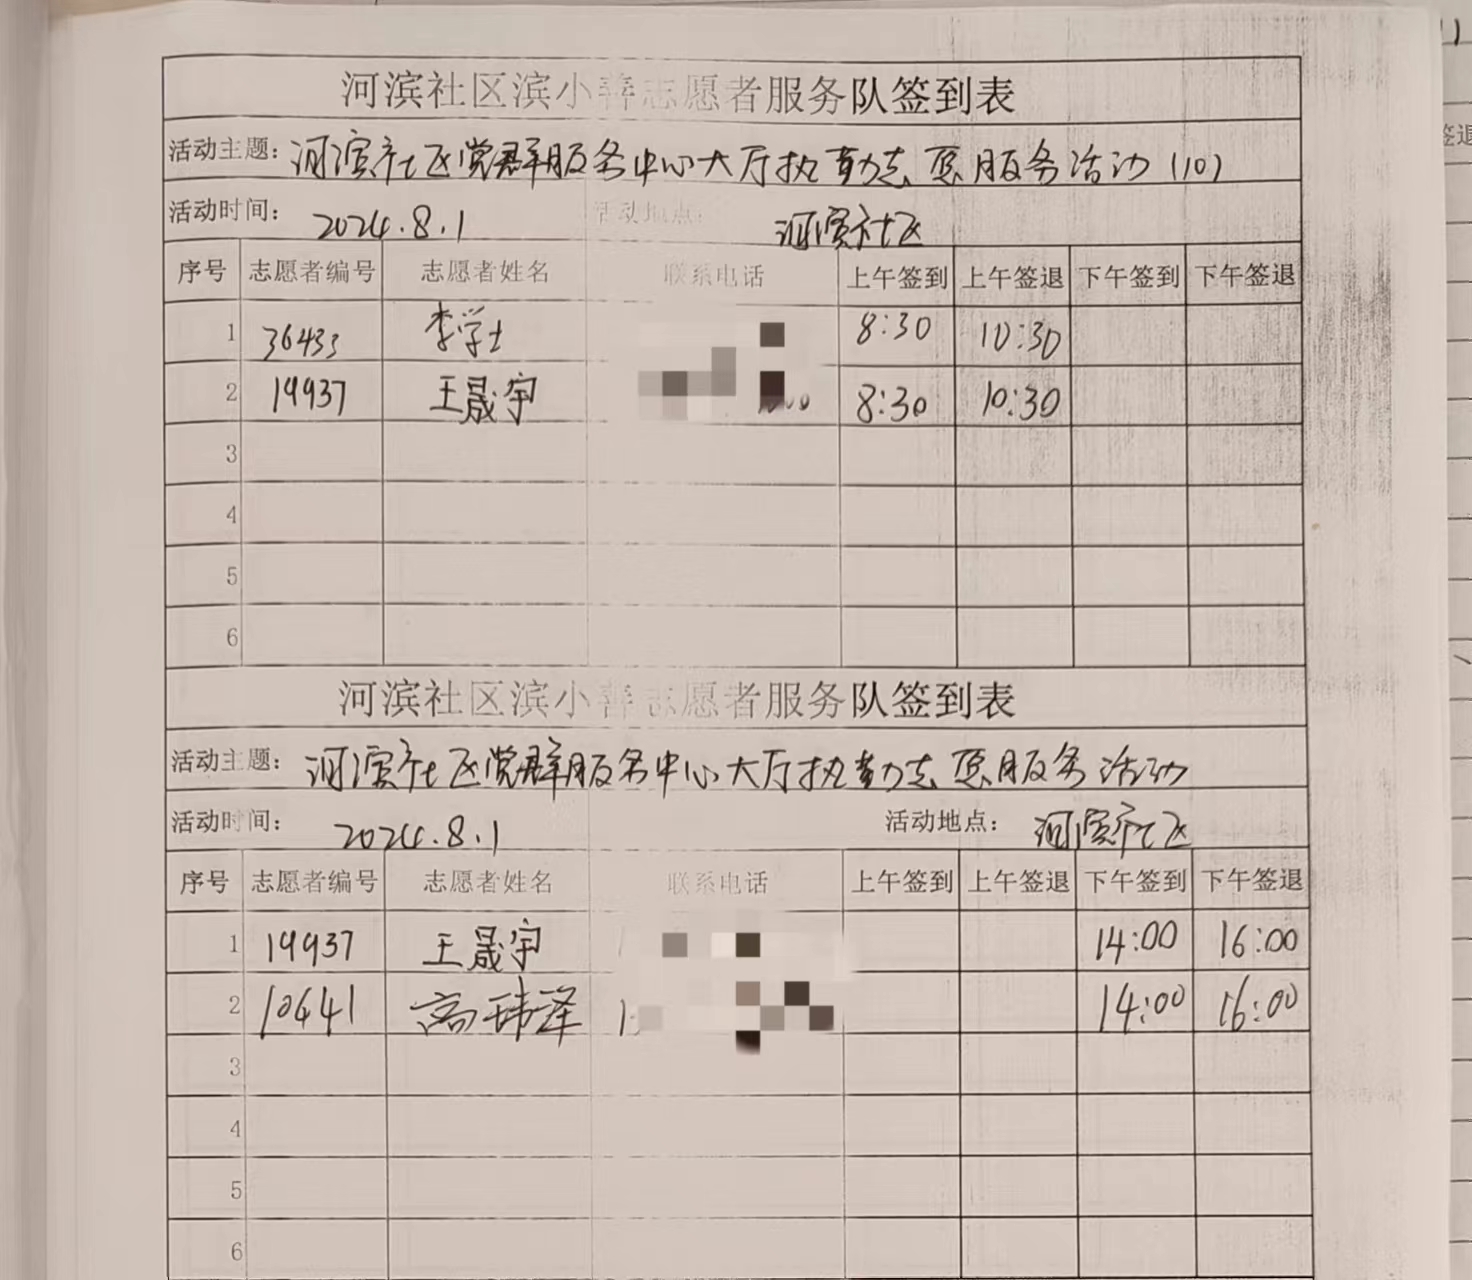 河滨社区滨小善志愿者服务队签到表
活动主题：河滨社区党群服务中心大厅执勤志愿服务活动（10）
活动时间： 2024.8.1 活动地点： 河滨社区
序号 志愿者编号 志愿者姓名 联系电话 上午签到 上午签退 下午签到 下午签退
1 36433 李学士 8:30 10:30
2 19937 王晟宇 8:30 10:30
3
4
5
6
河滨社区滨小善志愿者服务队签到表
活动主题： 河滨社区党群服务中心大厅执勤志愿服务活动
活动时间： 2024.8.1 活动地点： 河滨社区
序号 志愿者编号 志愿者姓名 联系电话 上午签到 上午签退 下午签到 下午签退
1 19937 王晟宇 14:00 16:00
2 10641 高玮泽 14:00 16:00
3
4
5
6